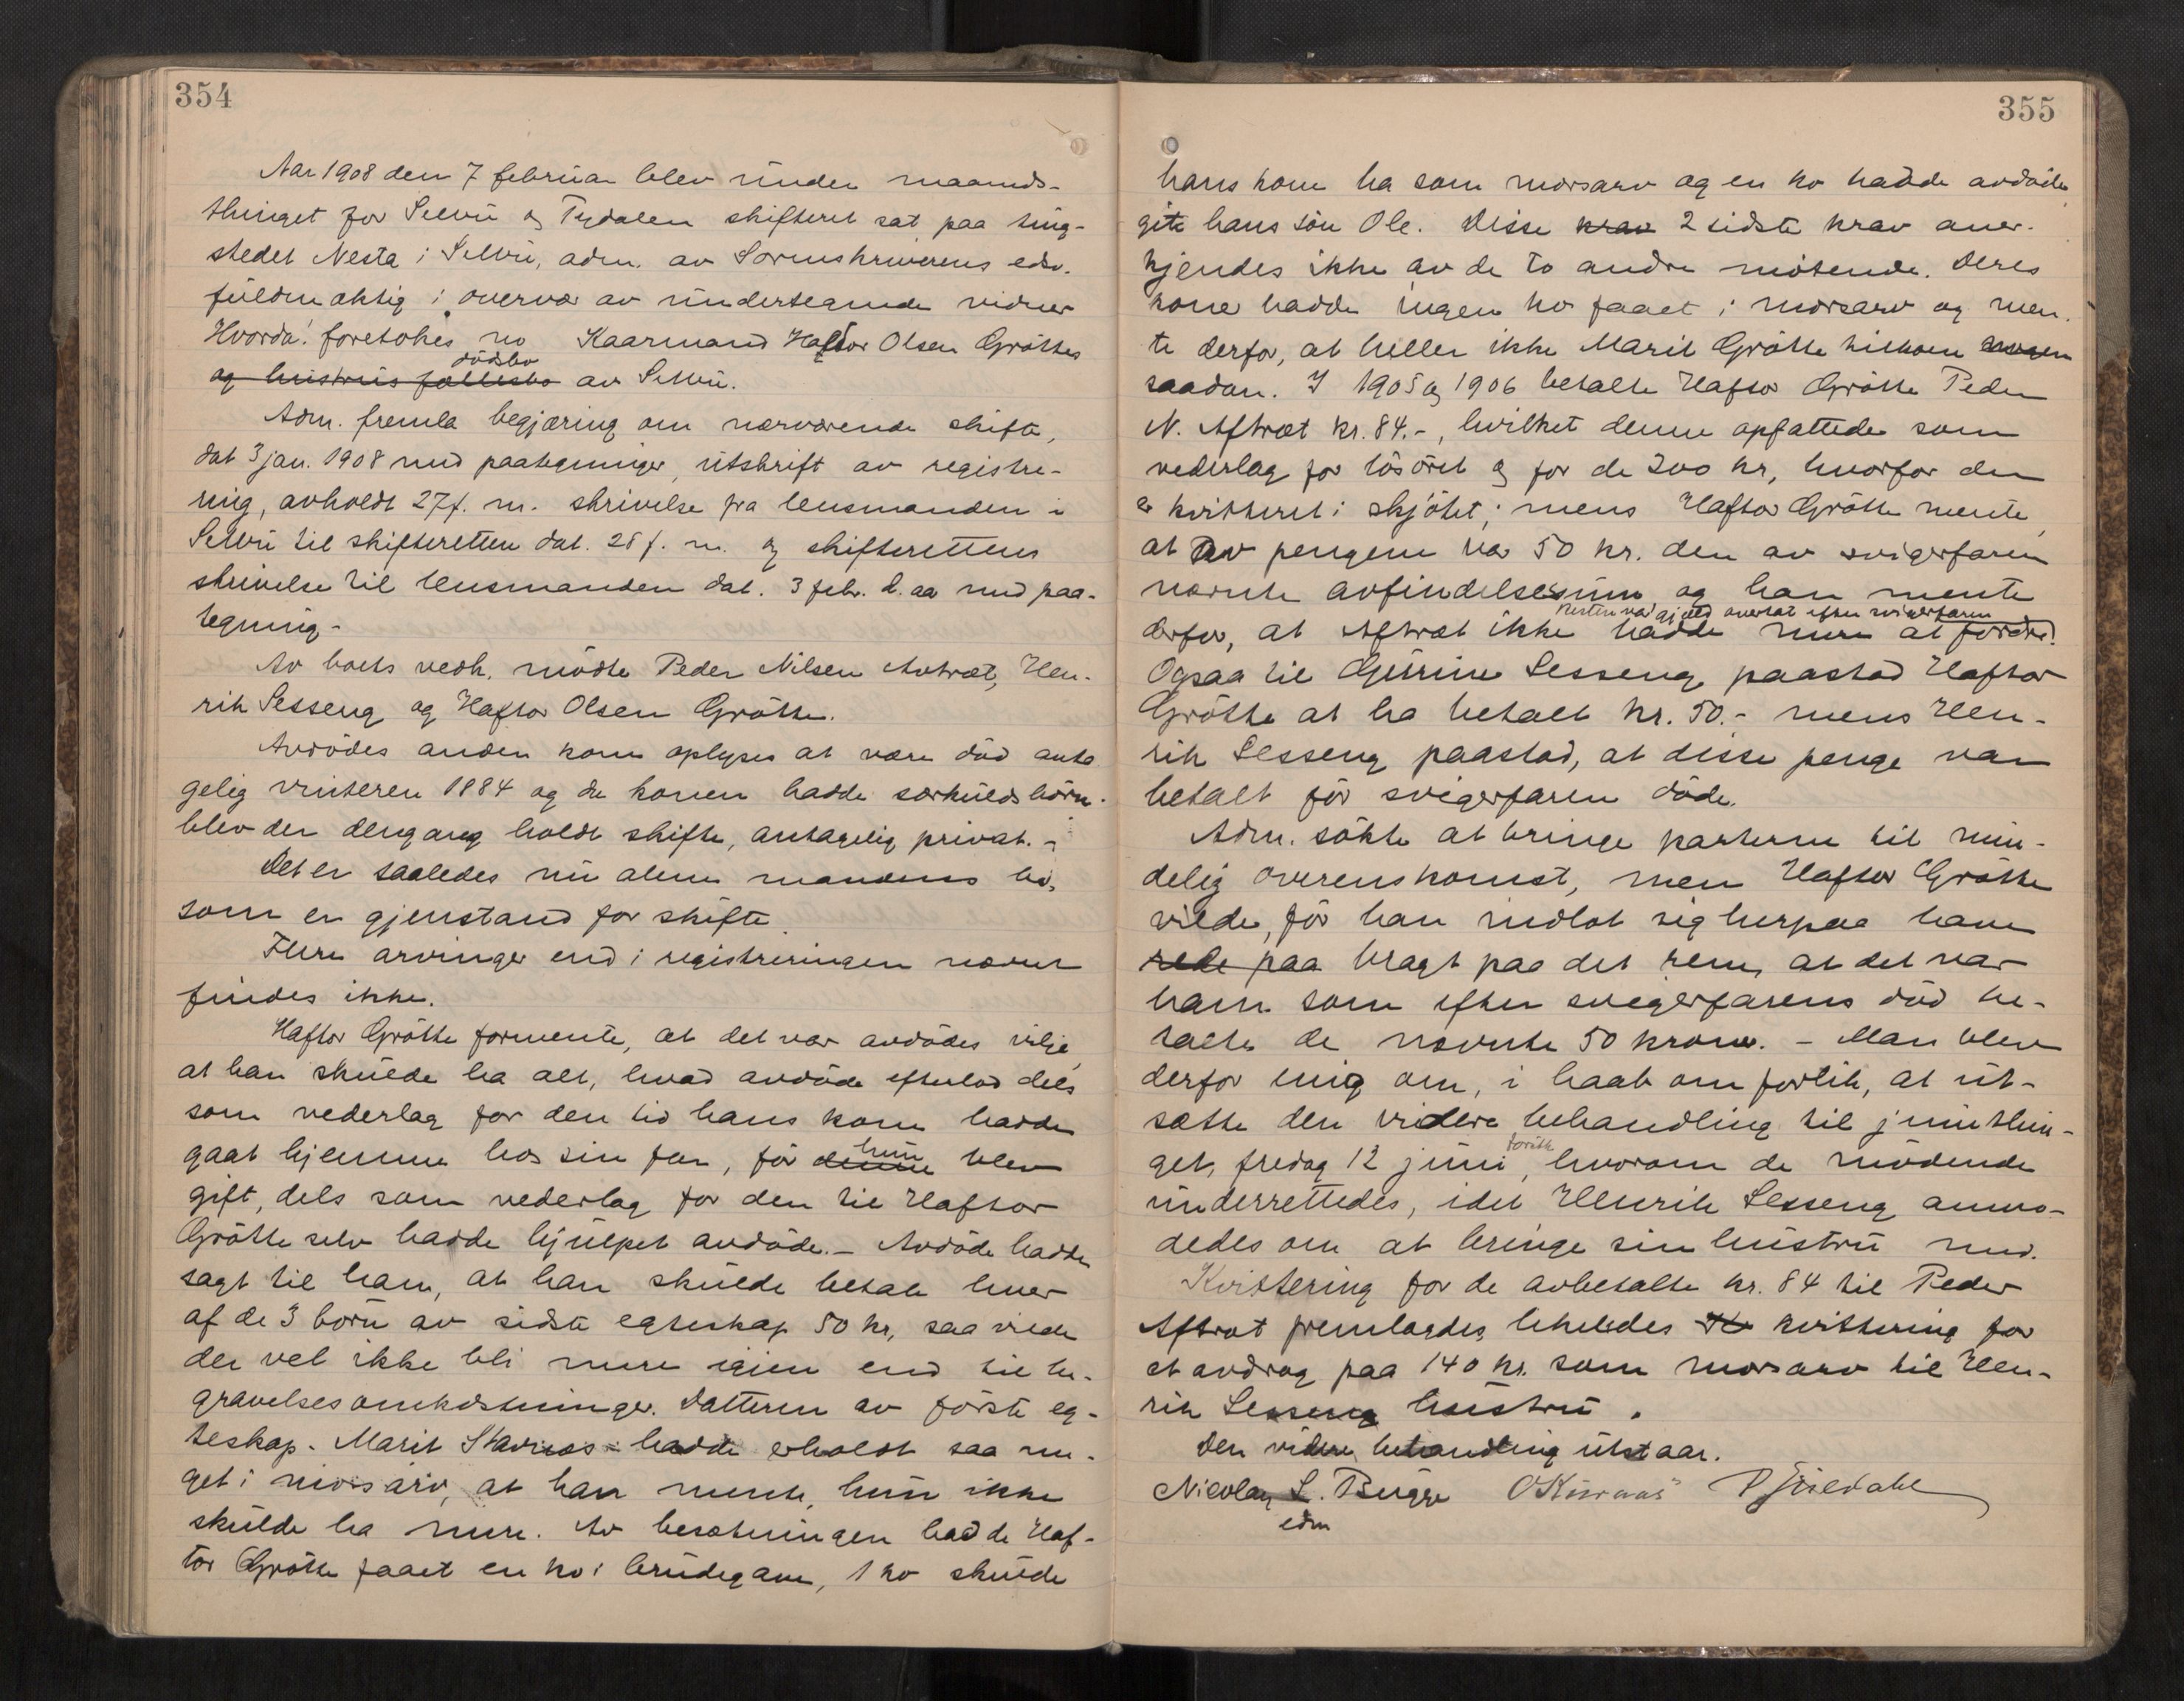 354
Aar 1908 den 7 februar blev under maaneds-
thinget for Selbu og Tydalen skifteret sat paa ting-
stedet Nesta i Selbu, adm. av Sorenskriverens edsv.
fuldmægtig i overvær av undertegnede vidner
Hvorda! foretokes no Kaarmand Haftor Olsen Gröttes
dödsbo
og hustrus fællesbo av Selbu.
Adm. fremla begjæring om nærværende skifte,
dat 3 jan. 1908 med paategninger, utskrift av registre-
ring, avholdt 27 f. m. skrivelse fra lensmanden i
Selbu til skifteretten dat. 28 f. m. og skifterettens
skrivelse til lensmanden dat. 3 febr. d. aa med paa-
tegning-
Av boets vedk. mödte Peder Nilsen Autræt, Hen-
rik Sesseng og Haftor Olsen Grötte.
Avdödes anden kone oplyses at være död anta
gelig vinteren 1884 og da konen hadde særkuldsbörn
blev der dengang holdt skifte, antagelig privat.-
Det er saaledes nu alene mandens bo,
som er gjenstand for skifte.
Flere arvinger end i registreringen nævnt
findes ikke.
Haftor Grötte formente, at det var avdödes vilje,
at han skulde ha alt, hvad avdöde efterlod dels
som vederlag for den tid hans kone hadde
gaat hjemme hos sin far, för denne hun blev
gift, dels som vederlag for den tid Haftor
Grötte selv hadde hjulpet avdöde.- Avdöde hadde
sagt til ham, at han skulde betale hver
af de 3 börn av sidste egteskap 50 kr, saa vilde
der vel ikke bli mere igjen end til be-
gravelsesomkostninger. Datteren av förste eg-
teskap - Marit Stavnaas - hadde erholdt saa me-
get i morsarv, at han mente, hun ikke
skulde ha mere. Av besætningen hadde Haf-
tor Grötte faaet en ko i brudegave, 1 ko skulde
355
hans kone ha som morsarv og en ko hadde avdöde
git hans sön Ole. Disse krav 2 sidste krav aner-
kjendes ikke av de to andre mötende. Deres
koner hadde ingen ko faaet i morsarv og men-
te derfor, at heller ikke Marit Grötte tilkom
saadan. I 1905 og 1906 betalte Haftor Grötte Peder
N. Aftræt kr. 84.-, hvilket denne opfattede som
vederlag for lösöret og for de 200 kr, hvorfor der
er kvitteret i skjötet; mens Haftor Grötte mente,
at av pengene var 50 kr. den av svigerfaren
nævnte avfindelsessum og han mente
Resten var gjæld overtat efter svigerfaren
derfor, at Aftræt ikke hadde mere at fordre.
Ogsaa til Gurine Sesseng paastod Haftor
Grötte at ha betalt kr. 50.- mens Hen-
rik Sesseng paastod, at disse penge var
betalt för svigerfaren döde.
Adm. sökte at bringe parterne til min-
delig overenskomst, men Haftor Grötte
vilde, för han indlot sig herpaa have
rede paa bragt paa det rene, at det var
ham som efter svigerfarens död be-
talte de nævnte 50 kroner. - Man blev
derfor enig om, i haab om forlik, at ut-
sætte den videre behandling til junithin-
get, fredag 12 juni, hvorom de mödende
underrettedes, idet Henrik Sesseng anmo-
dedes om at bringe sin hustru med.
Kvittering for de avbetalte kr. 84 til Peder
Aftræt fremlagdes, likeledes kvittering for
et avdrag paa 140 kr. som morsarv til Hen-
rik Sesseng hustru.
Den videre behandling utstaar.
Nicolay S. Bugge O Kuraas P Guldahl
edm